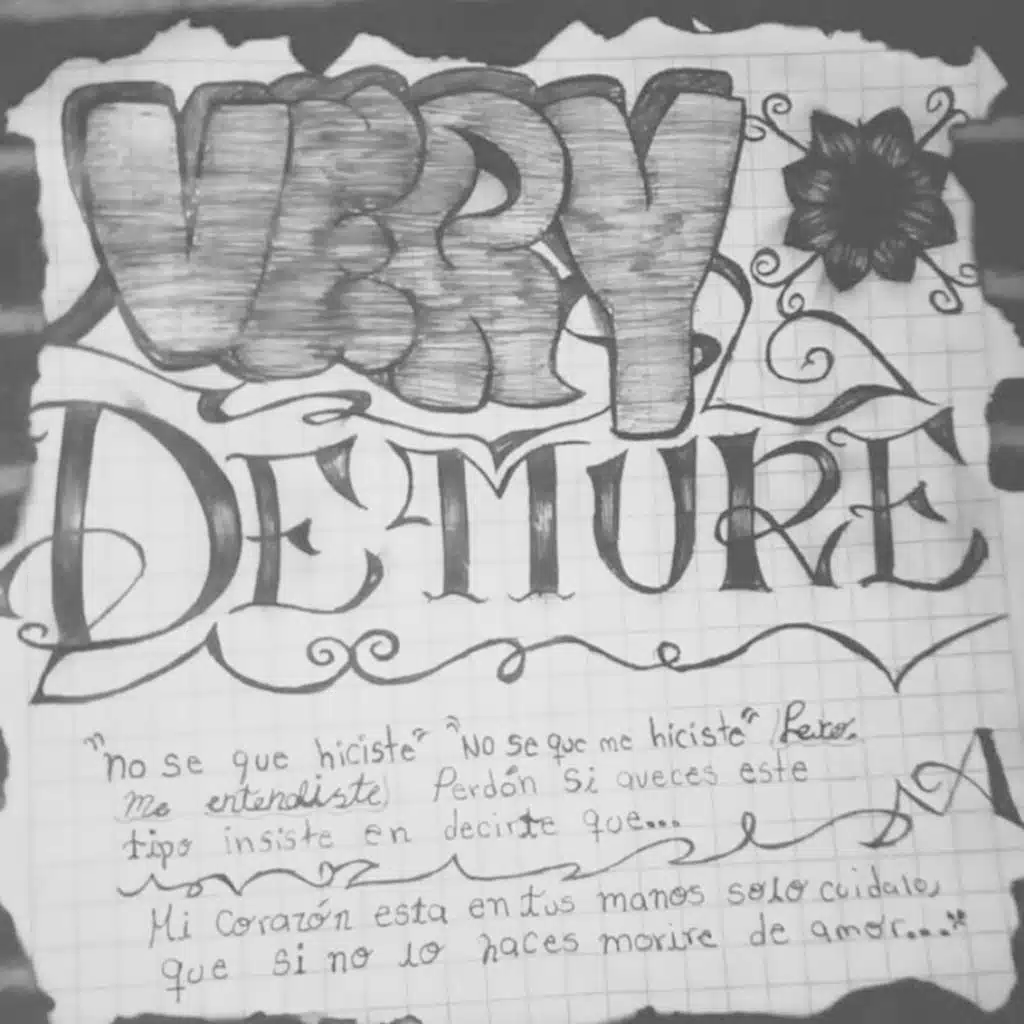 VERY
DEMURE
"no se que hiciste" "No se que me hiciste" Pero.
me entendiste) Perdón si aveces este
tipo insiste en decirte que...
A
Mi Corazón esta en tus manos solo cuidalo,
que si no lo haces morire de amor..."